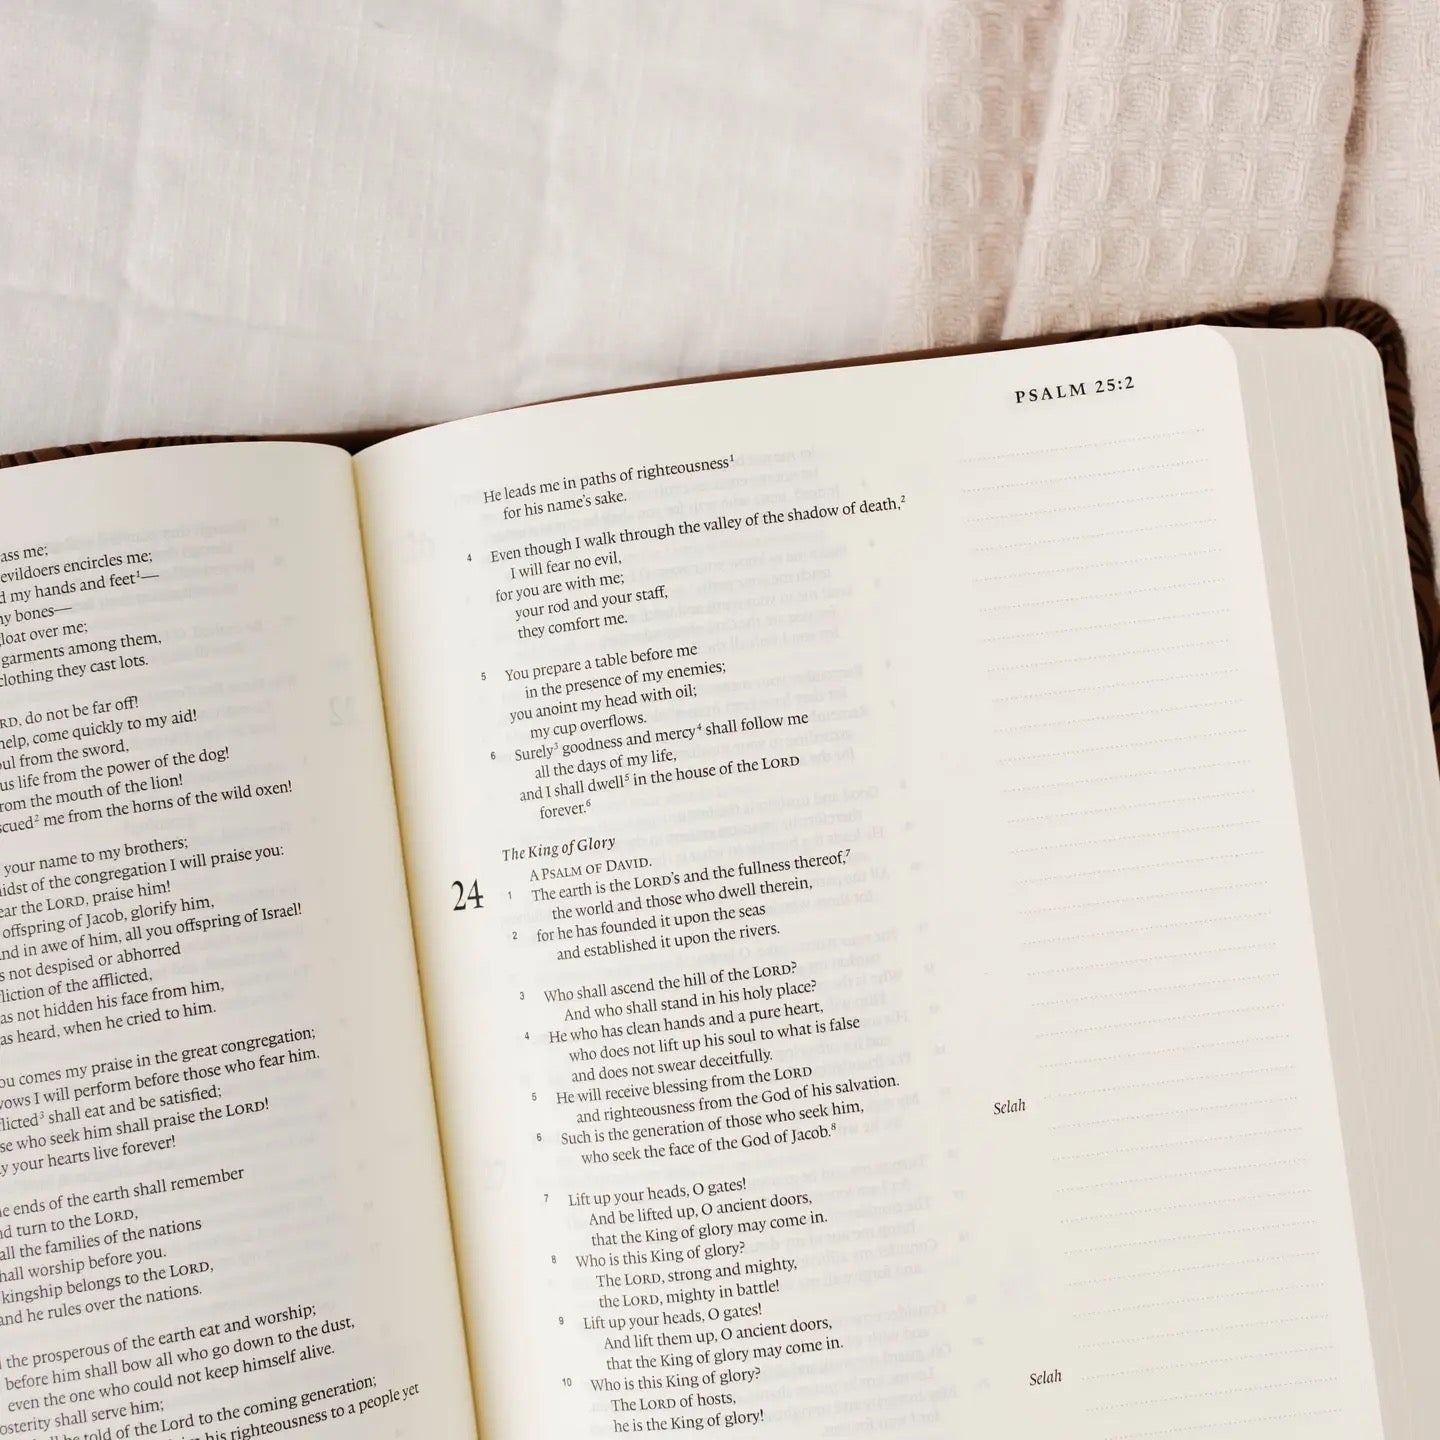 ass me;
evildoers encircles me;
my hands and feet¹—
my bones—
gloat over me;
garments among them,
clothing they cast lots.
do not be far off!
help, come quickly to my aid!
from the sword,
life from the power of the dog!
from the mouth of the lion!
me from the horns of the wild oxen!
your name to my brothers;
of the congregation I will praise you:
the LORD, praise him!
offspring of Jacob, glorify him,
in awe of him, all you offspring of Israel!
not despised or abhorred
of the afflicted,
not hidden his face from him,
heard, when he cried to him.
comes my praise in the great congregation;
vows I will perform before those who fear him.
shall eat and be satisfied;
who seek him shall praise the LORD!
your hearts live forever!
ends of the earth shall remember
turn to the LORD,
all the families of the nations
worship before you.
kingship belongs to the LORD,
and he rules over the nations.
the prosperous of the earth eat and worship;
before him shall bow all who go down to the dust,
even the one who could not keep himself alive.
shall serve him;
be told of the Lord to the coming generation;
his righteousness to a people yet
PSALM 25:2
He leads me in paths of righteousness¹
for his name's sake.
4 Even though I walk through the valley of the shadow of death,²
I will fear no evil,
for you are with me;
your rod and your staff,
they comfort me.
5 You prepare a table before me
in the presence of my enemies;
you anoint my head with oil;
my cup overflows.
6 Surely³ goodness and mercy⁴ shall follow me
all the days of my life,
and I shall dwell⁵ in the house of the LORD
forever.⁶
The King of Glory
A PSALM OF DAVID.
24 1 The earth is the LORD's and the fullness thereof,⁷
the world and those who dwell therein,
2 for he has founded it upon the seas
and established it upon the rivers.
3 Who shall ascend the hill of the LORD?
And who shall stand in his holy place?
4 He who has clean hands and a pure heart,
who does not lift up his soul to what is false
and does not swear deceitfully.
5 He will receive blessing from the LORD
and righteousness from the God of his salvation.
6 Such is the generation of those who seek him,
who seek the face of the God of Jacob.⁸ Selah
7 Lift up your heads, O gates!
And be lifted up, O ancient doors,
that the King of glory may come in.
8 Who is this King of glory?
The LORD, strong and mighty,
the LORD, mighty in battle!
9 Lift up your heads, O gates!
And lift them up, O ancient doors,
that the King of glory may come in.
10 Who is this King of glory?
The LORD of hosts,
he is the King of glory! Selah